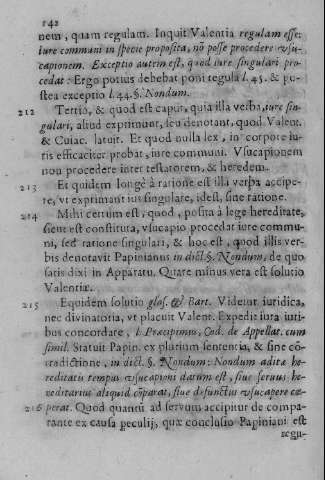 142
nem, quam regulam. Inquit Valentia regulam esse:
iure communi in specie proposita, nō posse procedere vsu-
capionem. Exceptio autem est, quod iure singulari pro-
cedat: Ergo potius debebat poni regula l. 45. & po-
stea exceptio l. 44. §. Nondum.
212 Tertio, & quod est caput, quia illa verba, iure sin-
gulari, aliud exprimunt, seu denotant, quod Valent.
& Cuiac. latuit. Et quod nulla lex, in corpore iu-
ris efficaciter probat, iure communi. Vsucapionem
non procedere inter testatorem, & heredem.
213 Et quidem longè à ratione est illa verba accipe-
re, vt exprimant ius singulare, idest, sine ratione.
214 Mihi certum est, quod, posita à lege hereditate,
sicut est constituta, vsucapio procedat iure commu-
ni, sed ratione singulari, & hoc est, quod illis ver-
bis denotavit Papinianus in dict. §. Nondum, de quo
satis dixi in Apparatu. Quare minus vera est solutio
Valentiæ.
215 Equidem solutio glos. & Bart. Videtur iuridica,
nec divinatoria, vt placuit Valent. Expedit iura iuti-
bus concordare, l. Præcipimus, Cod. de Appellat. cum
simil. Statuit Papin. ex plurium sententia, & sine cō-
tradictione, in dict. §. Nondum: Nondum aditæ he-
reditatis tempus vsucapioni datum est, siue seruus he-
reditarius aliquid cōparat, siue defunctus vsucapere cæ-
216 perat. Quod quantū ad seruum accipitur de compa-
rante ex causa peculij, quæ conclusio Papiniani est
segu-